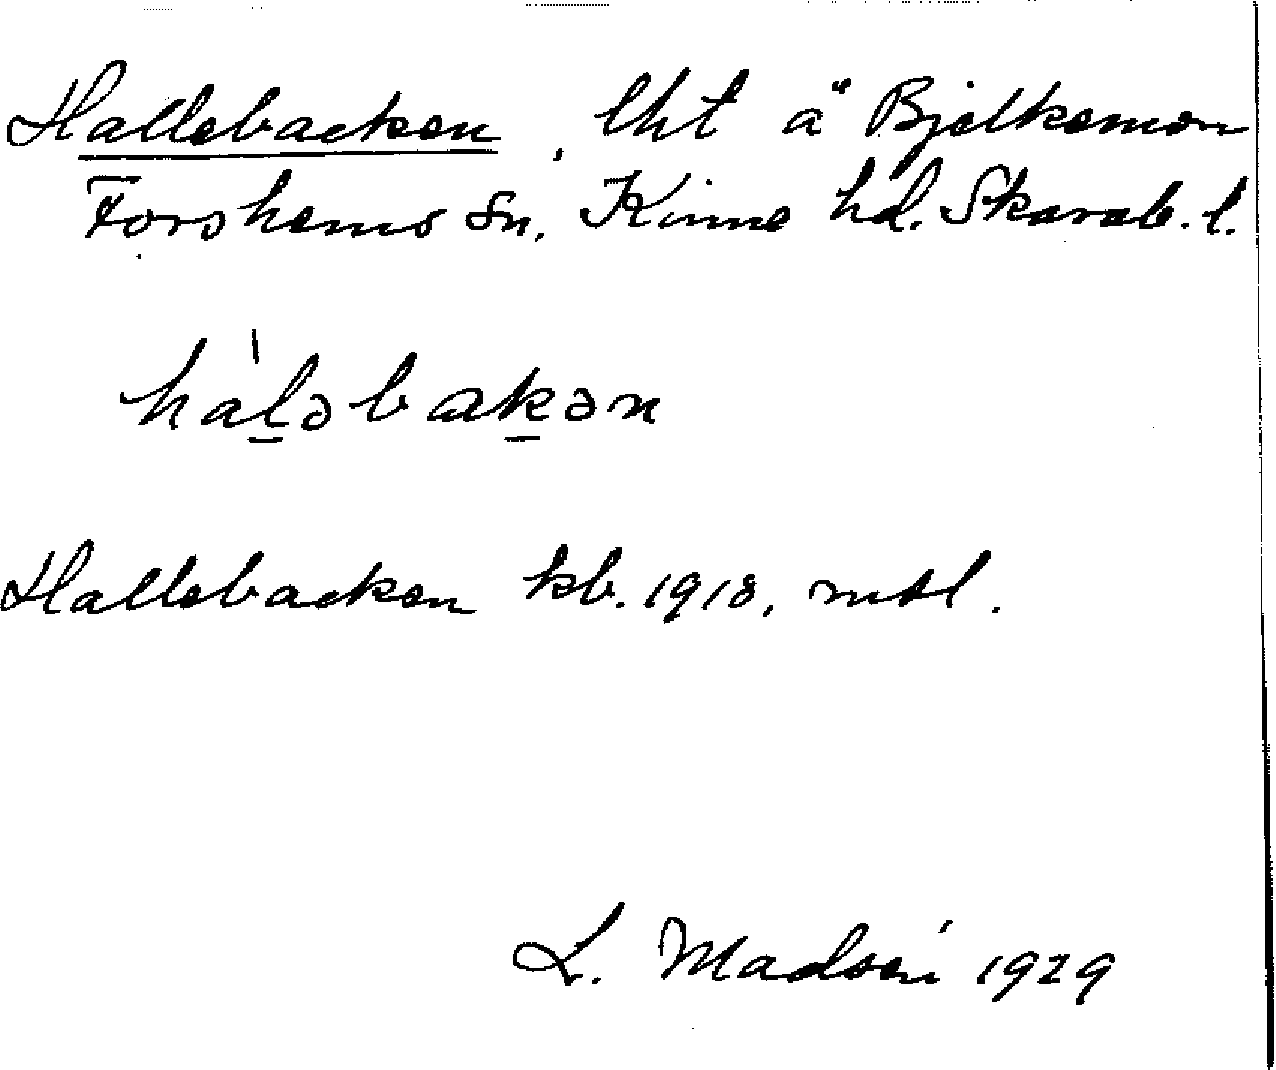 Hallebacken, lht å Bjelkemon
Forshems sn, Kinne hd. Skarab. l.
hàl̠əbak̠ən
Hallebacken kb. 1918, mtl.
L. Madsén 1929